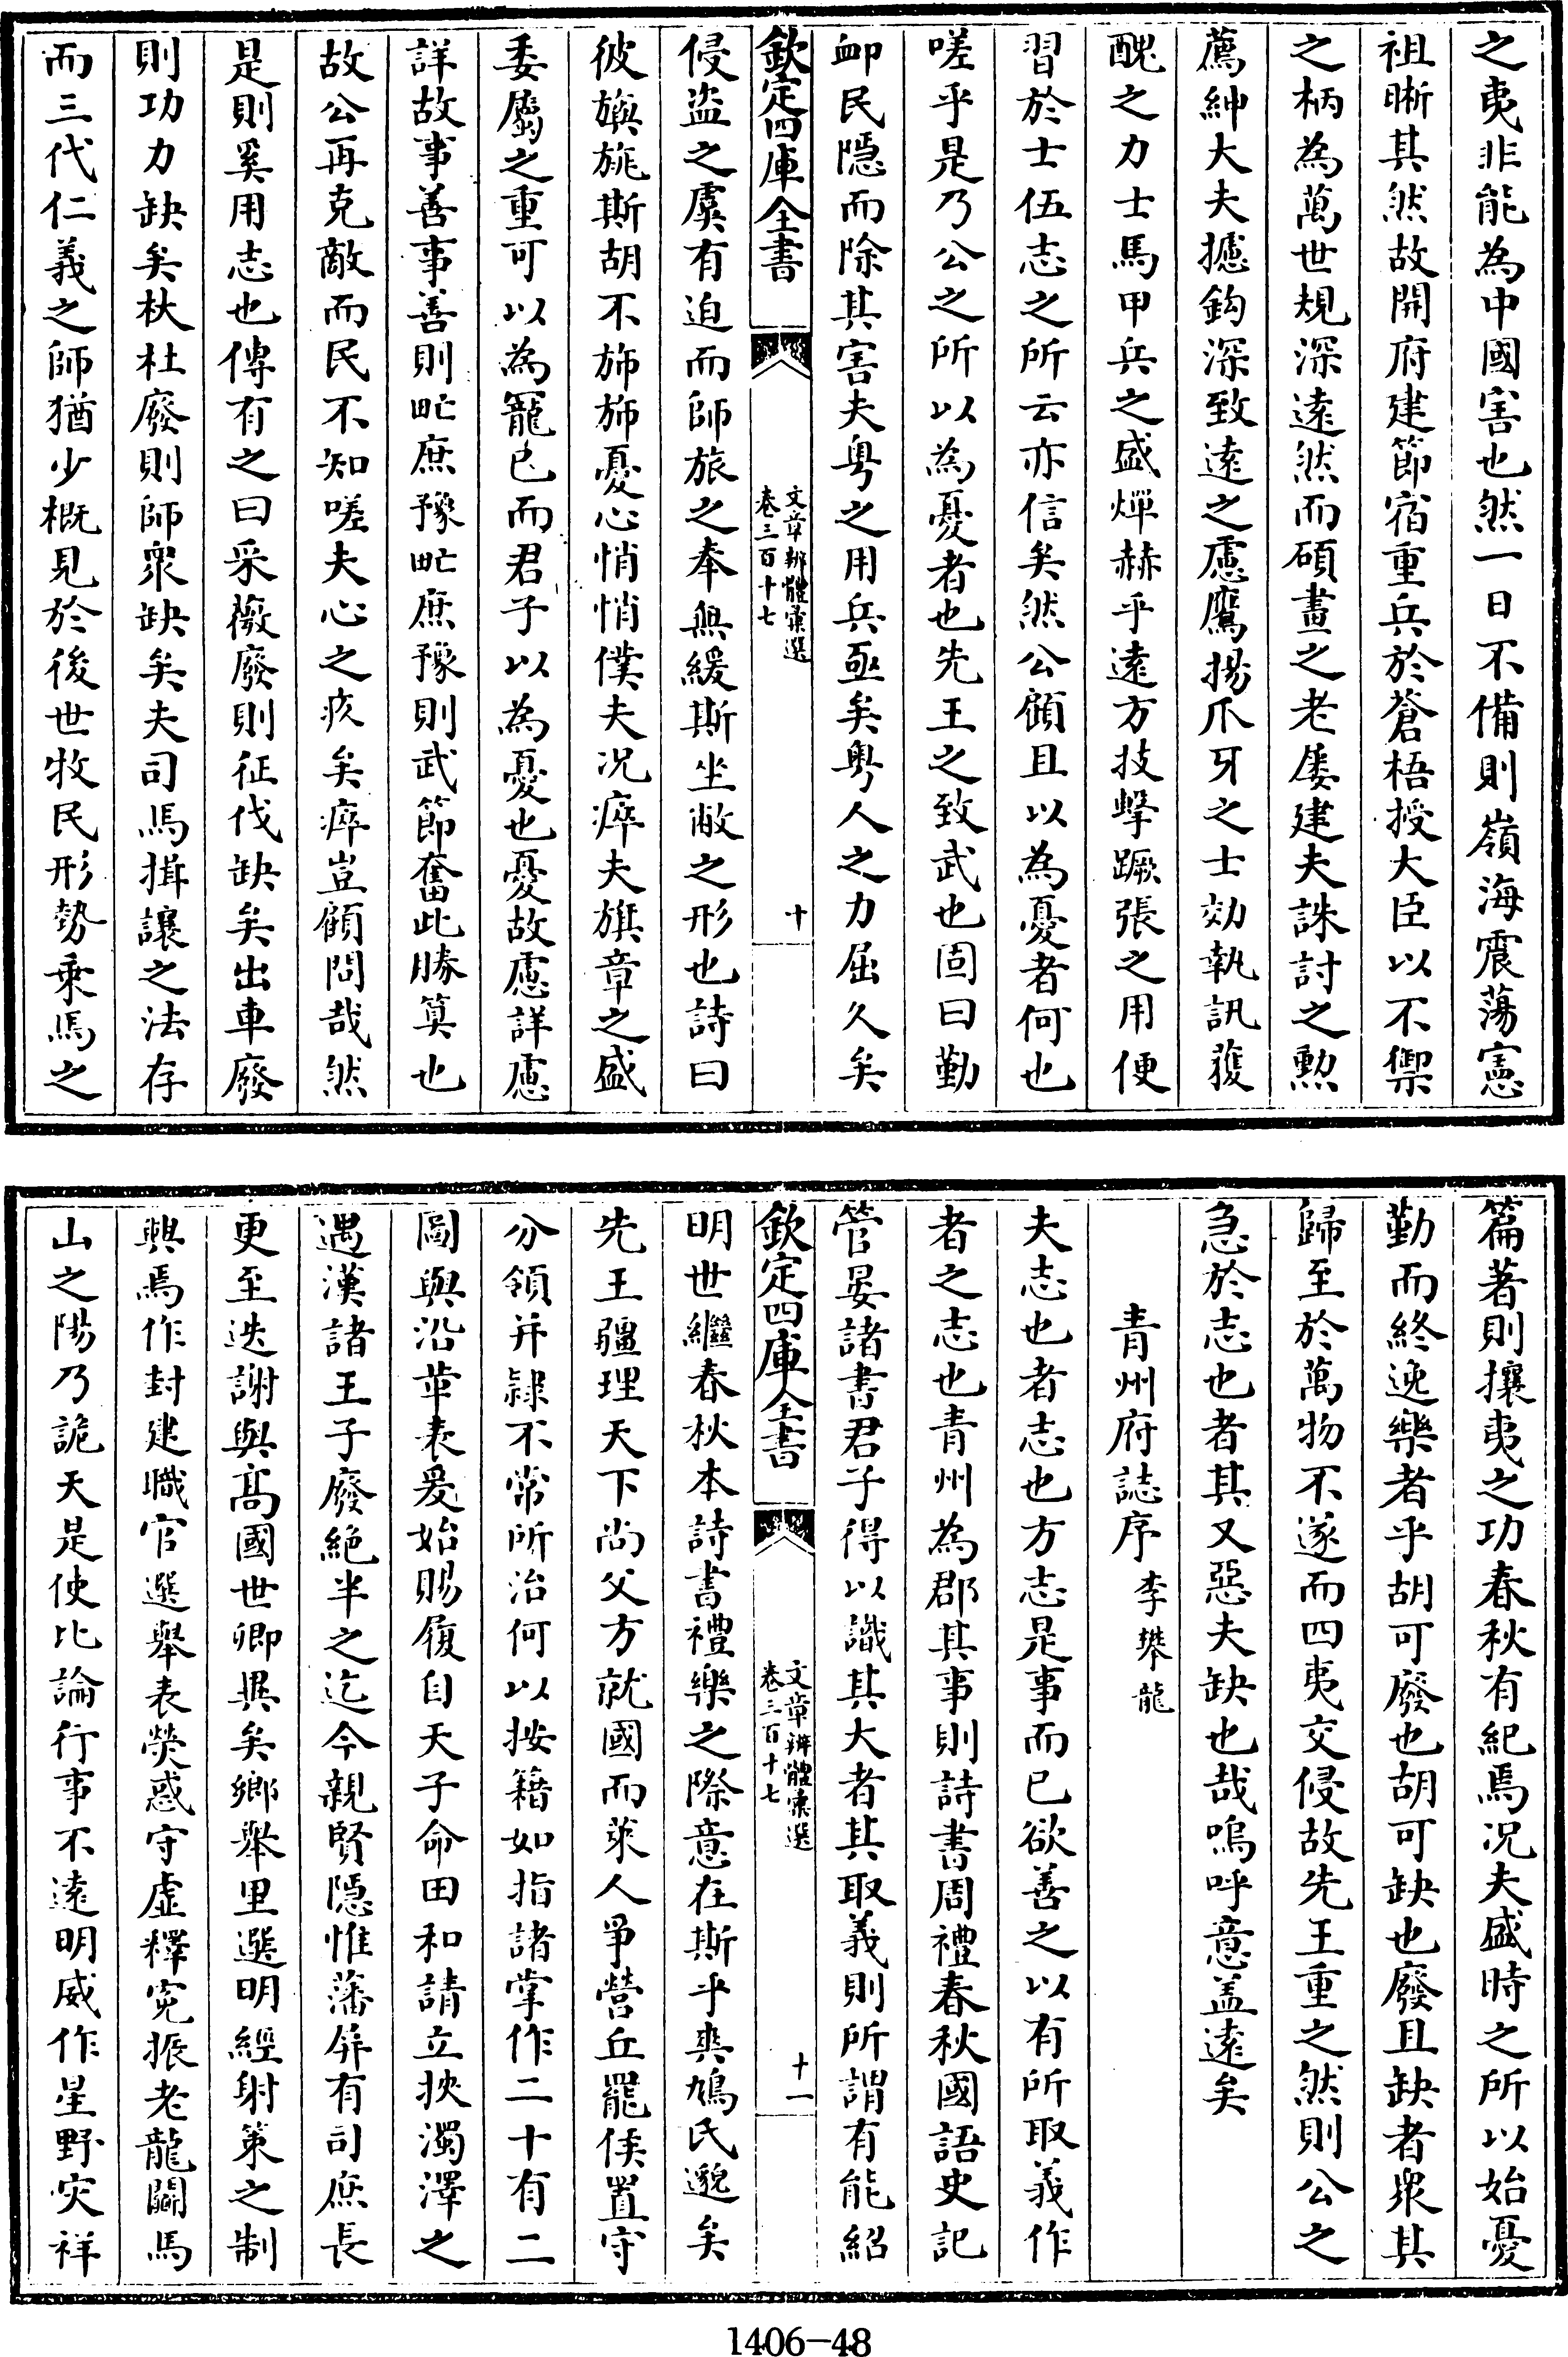 之夷非能為中國害也然一日不備則嶺海震蕩憲
祖晰其然故開府建節宿重兵於蒼梧授大臣以不禦
之柄為萬世規深遠然而碩畫之老屡建夫誅討之勲
薦紳大夫攄鈎深致遠之慮鷹揚爪牙之士効執訊蒦
醜之力士馬甲兵之盛燀赫乎遠方技擊蹶張之用便
習於士伍志之所云亦信矣然公顧且以為憂者何也
嗟乎是乃公之所以為憂者也先王之致武也固曰勤
䘏民隠而除其害夫粤之用兵亟矣粤人之力屈久矣
欽定四庫全書
文章辨體彚選
卷三百十七
十
侵盗之虞有迫而師旅之奉無緩斯坐敝之形也詩曰
彼旟旐斯胡不斾斾憂心悄悄僕夫况瘁夫旗章之盛
委屬之重可以為寵也而君子以為憂也憂故慮詳慮
詳故事善事善則甿庶豫甿庶豫則武節奮此勝筭也
故公再克敵而民不知嗟夫心之疚矣瘁豈顧問哉然
是則奚用志也傳有之曰采薇廢則征伐缺矣出車廢
則功力缺矣杕杜廢則師衆缺矣夫司馬揖讓之法存
而三代仁義之師猶少概見於後世牧民形勢乘馬之
篇著則攘夷之功春秋有紀焉况夫盛時之所以始憂
勤而終逸樂者乎胡可廢也胡可缺也廢且缺者衆其
歸至於萬物不遂而四夷交侵故先王重之然則公之
急於志也者其又惡夫缺也哉嗚呼意盖遠矣
青州府誌序 李攀龍
夫志也者志也方志是事而已欲善之以有所取義作
者之志也青州為郡其事則詩書周禮春秋國語史記
管晏諸書君子得以識其大者其取義則所謂有能紹
欽定四庫全書
文章辨體彚選
卷三百十七
十一
明世繼春秋本詩書禮樂之際意在斯乎爽鳩氏邈矣
先王疆理天下尚父方就國而萊人爭營丘罷侯置守
分領并隷不常所治何以按籍如指諸掌作二十有二
圖與沿革表爰始賜履自天子命田和請立挾濁澤之
遇漢諸王子廢絶半之迄今親賢隠惟藩屏有司庶長
更至迭謝與髙國世卿異矣鄉舉里選明經射策之制
興焉作封建職官選舉表熒惑守虛釋寃振老龍鬭馬
山之陽乃詭天是使比論行事不遠明威作星野災祥
1406-48